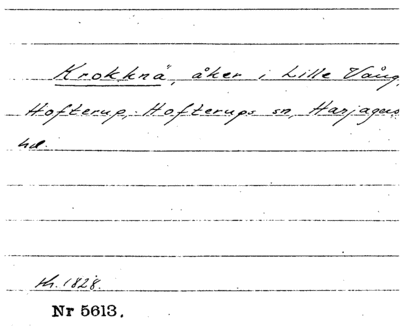 Krokknä, åker i Lille Vång,
Hofterup, Hofterups sn, Harjagers
hd.
th. 1828.
Nr 5613.